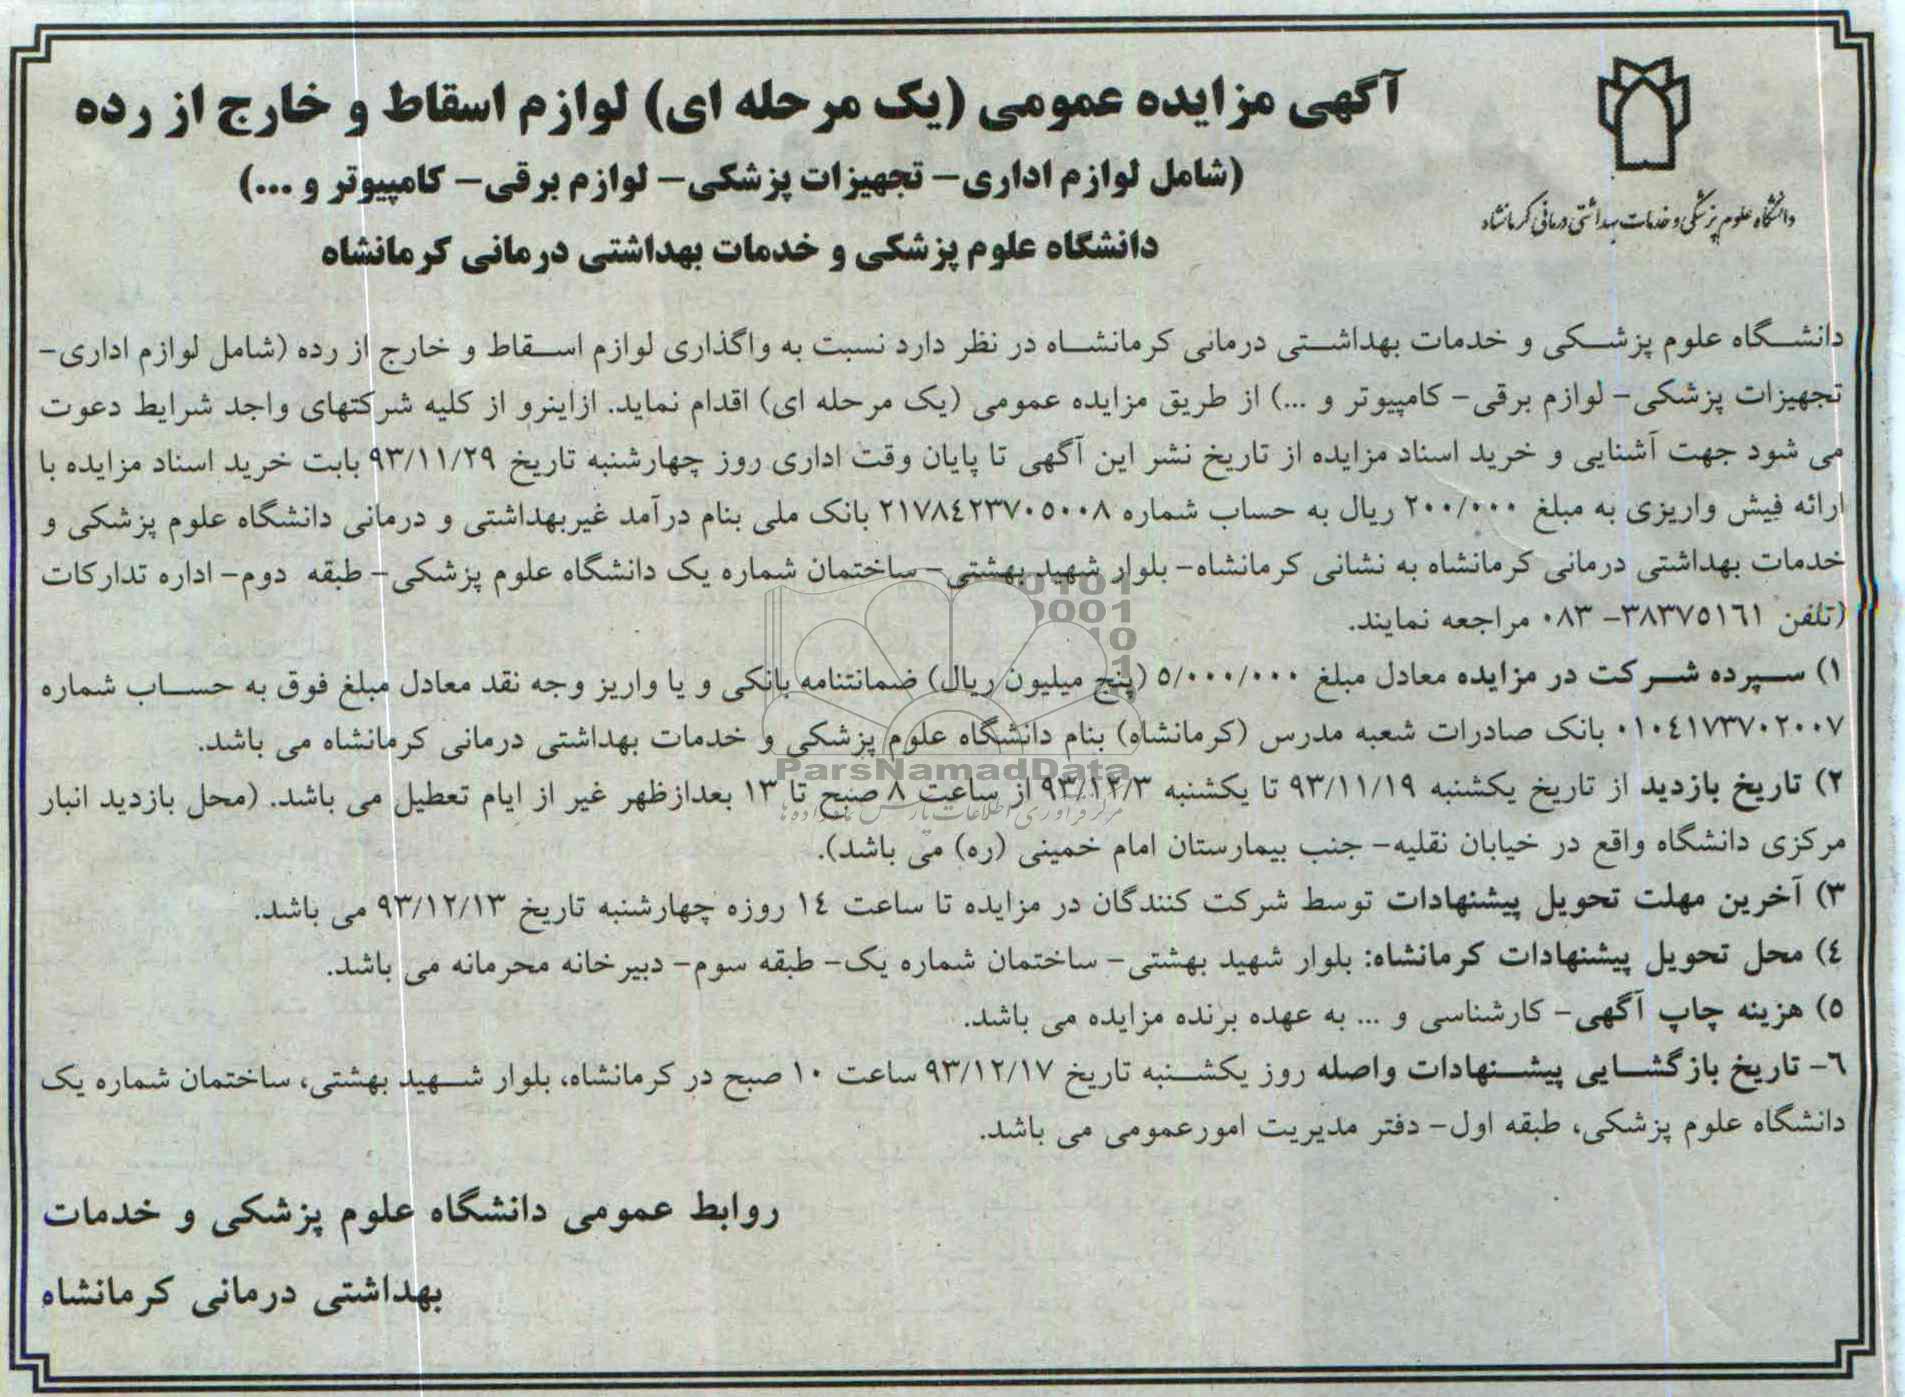 آگهی مزایده عمومی (یک مرحله ای) لوازم اسقاط و خارج از رده
(شامل لوازم اداری- تجهیزات پزشکی- لوازم برقی- کامپیوتر و ...)
دانشگاه علوم پزشکی و خدمات بهداشتی درمانی کرمانشاه
دانشگاه علوم پزشکی و خدمات بهداشتی درمانی کرمانشاه
دانشگاه علوم پزشکی و خدمات بهداشتی درمانی کرمانشاه در نظر دارد نسبت به واگذاری لوازم اسقاط و خارج از رده (شامل لوازم اداری-
تجهیزات پزشکی- لوازم برقی- کامپیوتر و ...) از طریق مزایده عمومی (یک مرحله ای) اقدام نماید. ازاینرو از کلیه شرکتهای واجد شرایط دعوت
می شود جهت آشنایی و خرید اسناد مزایده از تاریخ نشر این آگهی تا پایان وقت اداری روز چهارشنبه تاریخ ۹۳/۱۱/۲۹ بابت خرید اسناد مزایده با
ارائه فیش واریزی به مبلغ ۲۰۰/۰۰۰ ریال به حساب شماره ۲۱۷۸٤۲۳۷۰۵۰۰۸ بانک ملی بنام درآمد غیربهداشتی و درمانی دانشگاه علوم پزشکی و
خدمات بهداشتی درمانی کرمانشاه به نشانی کرمانشاه- بلوار شهید بهشتی- ساختمان شماره یک دانشگاه علوم پزشکی- طبقه دوم- اداره تدارکات
(تلفن ۳۸۳۷۵۱٦۱- ۰۸۳ مراجعه نمایند.
۱) سپرده شرکت در مزایده معادل مبلغ ۵/۰۰۰/۰۰۰ (پنج میلیون ریال) ضمانتنامه بانکی و یا واریز وجه نقد معادل مبلغ فوق به حساب شماره
۰۱۰٤۱۷۳۷۰۲۰۰۷ بانک صادرات شعبه مدرس (کرمانشاه) بنام دانشگاه علوم پزشکی و خدمات بهداشتی درمانی کرمانشاه می باشد.
۲) تاریخ بازدید از تاریخ یکشنبه ۹۳/۱۱/۱۹ تا یکشنبه ۹۳/۱۲/۳ از ساعت ۸ صبح تا ۱۳ بعدازظهر غیر از ایام تعطیل می باشد. (محل بازدید انبار
مرکزی دانشگاه واقع در خیابان نقلیه- جنب بیمارستان امام خمینی (ره) می باشد).
۳) آخرین مهلت تحویل پیشنهادات توسط شرکت کنندگان در مزایده تا ساعت ۱٤ روزه چهارشنبه تاریخ ۹۳/۱۲/۱۳ می باشد.
٤) محل تحویل پیشنهادات کرمانشاه: بلوار شهید بهشتی- ساختمان شماره یک- طبقه سوم- دبیرخانه محرمانه می باشد.
۵) هزینه چاپ آگهی- کارشناسی و ... به عهده برنده مزایده می باشد.
٦- تاریخ بازگشایی پیشنهادات واصله روز یکشنبه تاریخ ۹۳/۱۲/۱۷ ساعت ۱۰ صبح در کرمانشاه، بلوار شهید بهشتی، ساختمان شماره یک
دانشگاه علوم پزشکی، طبقه اول- دفتر مدیریت امورعمومی می باشد.
روابط عمومی دانشگاه علوم پزشکی و خدمات
بهداشتی درمانی کرمانشاه
ParsNamadData
مرکز فرآوری اطلاعات پارس نماد داده ها